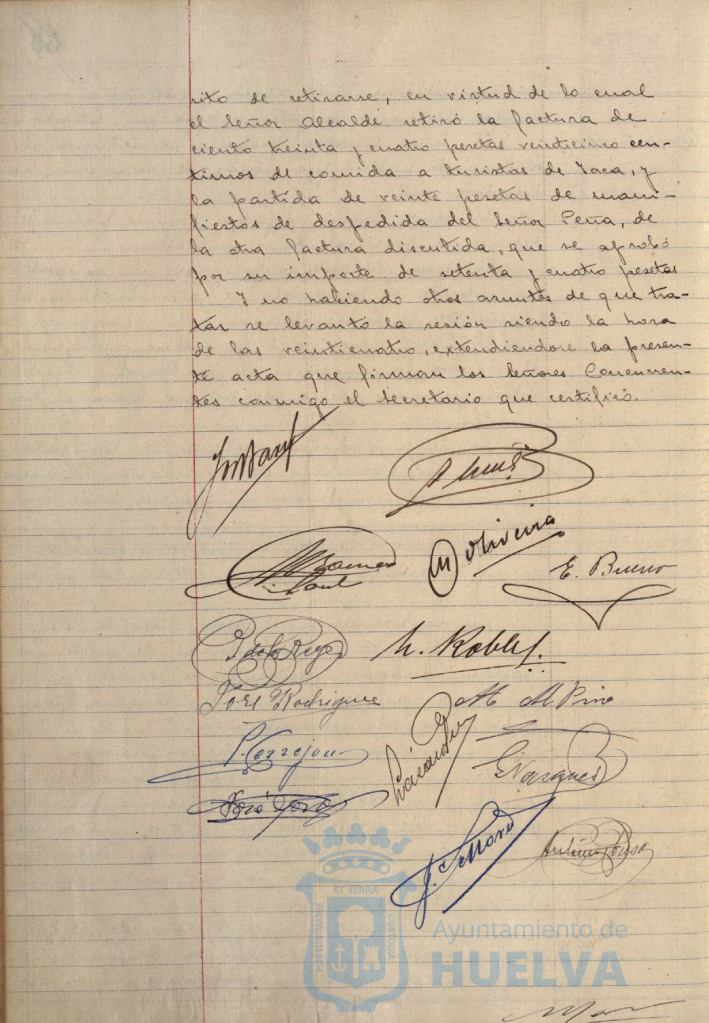 rito de retirarse, en virtud de lo cual
el Señor Alcalde retiró la factura de
ciento treinta y cuatro pesetas veinticinco cen-
timos de comida a turistas de Jaca, y
la partida de veinte pesetas de mani-
fiestos de despedida del Señor Peña, de
la otra factura discutida, que se aprobó
por su importe de setenta y cuatro pesetas
Y no habiendo otros asuntos de que tra-
tar se levantó la sesión siendo la hora
de las veinticuatro, extendiendose la presen-
te acta que firman los Señores Concurren-
tes conmigo el Secretario que certifico.
M Oliveira
E. Bueno
P de los Reyes
h. Robles.
José Rodriguez
M Pino
P. Cerrejon
E Vazquez
José
Antonio
ET TERRÆ
PORTUS MARIS
CUSTODIA
Ayuntamiento de
HUELVA